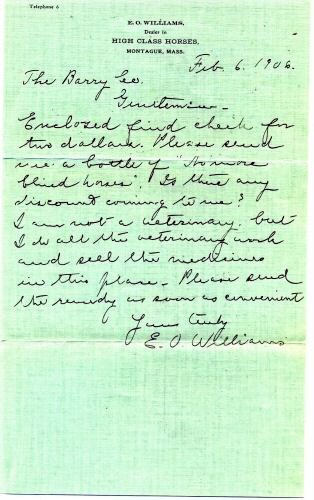 Telephone 6
E. O. WILLIAMS,
Dealer in
HIGH CLASS HORSES,
MONTAGUE, MASS.
Feb. 6. 1906.
The Barry Co.
Gentlemen –
Enclosed find check for
two dollars. Please send
me a bottle of "No more
blind horses". Is there any
discount coming to me?
I am not a veterinary. but
I do all the veterinary work
and sell the medicines
in this place – Please send
the remedy as soon as convenient
Yours truly
E. O Williams